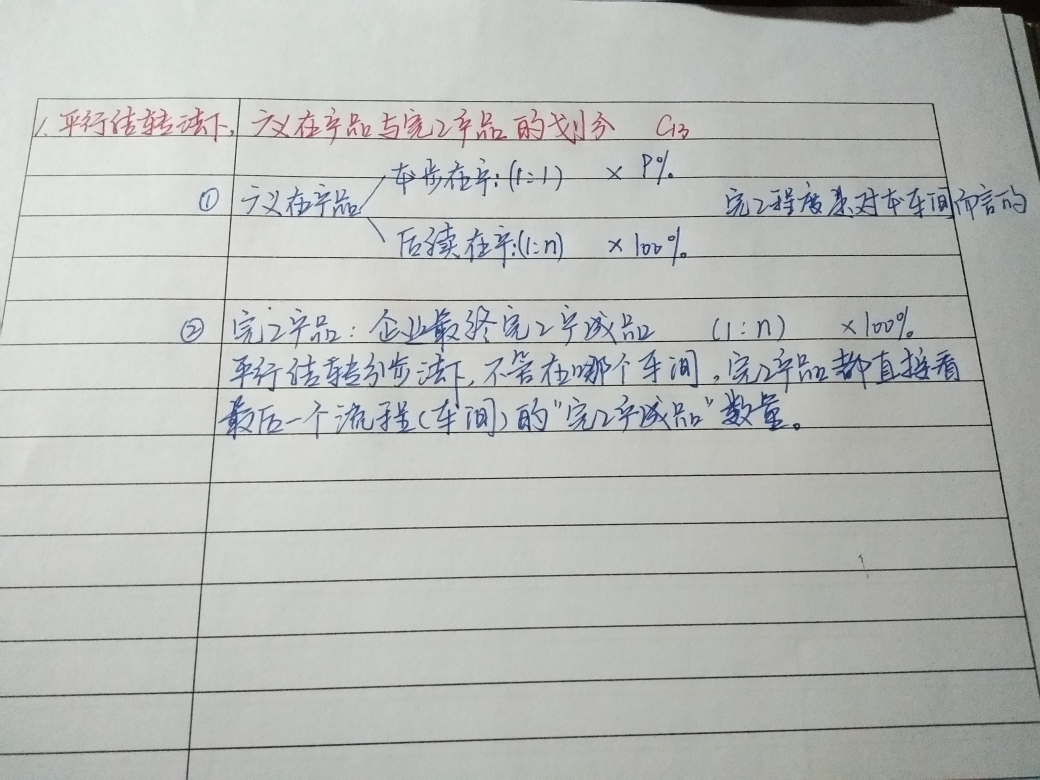 1. 平行结转法下, 广义在产品与完工产品的划分 C13
本步在产:(1:1) × P%
① 广义在产品 完工程度是对本车间而言的
后续在产:(1:n) ×100%
② 完工产品：企业最终完工产成品 (1:n) ×100%
平行结转分步法下,不管在哪个车间,完工产品都直接看
最后一个流程(车间)的"完工产成品"数量。